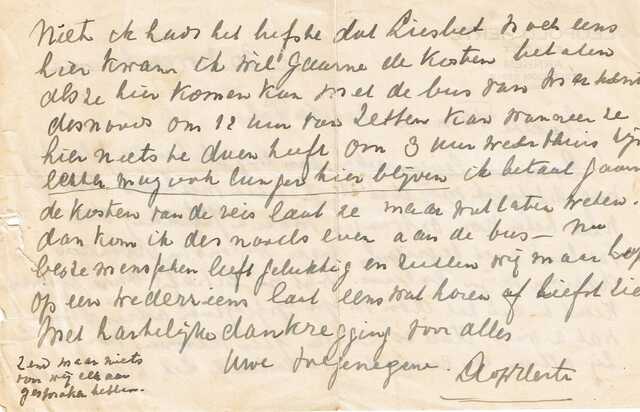 Niet ik had het liefste dat Liesbet noch eens
hier kwam ik wil gaarne de kosten betalen
als ze hier komen kan met de bus van
desnoods om 12 uur van Zetten kan wanneer ze
hier niets te doen heeft om 3 uur weer thuis zijn
echter mag ook langer hier blijven ik betaal gaarn
de kosten van de reis laat ze maar wat laten weten.
dan kom ik des noods even aan de bus – Nu
beste menschen leeft gelukkig en zullen wij maar
op een wederziens laat eens wat horen of liefst zie
Met hartelijke dankzegging voor alles
Uwe toegenegene
Zend maar niets
voor wij elkaar
gesproken hebben.